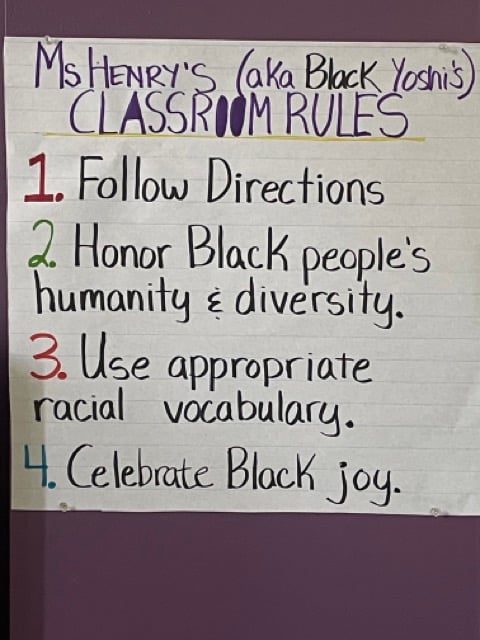 Ms HENRY'S (aka Black Yoshi's)
CLASSROOM RULES
1. Follow Directions
2. Honor Black people's
humanity & diversity.
3. Use appropriate
racial vocabulary.
4. Celebrate Black joy.